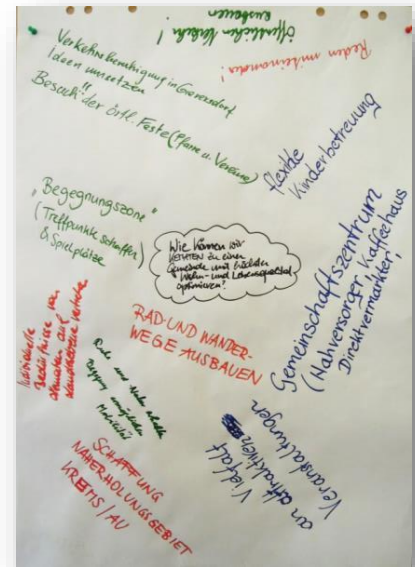 öffentlichen Verkehr!
ausbauen
Reden miteinander!
Verkehrsberuhigung in
Ideen umsetzen
Besuch der örtl. Feste (Pfarre u. Vereine)
flexible
Kinderbetreuung
"Begegnungszone"
(Treffpunkte schaffen)
& Spielplätze
Wie können wir
zu einer
Gemeinde mit höchster
Wohn- und Lebensqualität
optimieren?
Gemeinschaftszentrum
(Nahversorger, Kaffeehaus
Direktvermarkter)
RAD-UND WANDER-
WEGE AUSBAUEN
Individuelle
Bedürfnisse von
auf
Mobilität
Vielfalt
an attraktiven
Veranstaltungen
SCHAFFUNG
NAHERHOLUNGSGEBIET
KREMS/AU